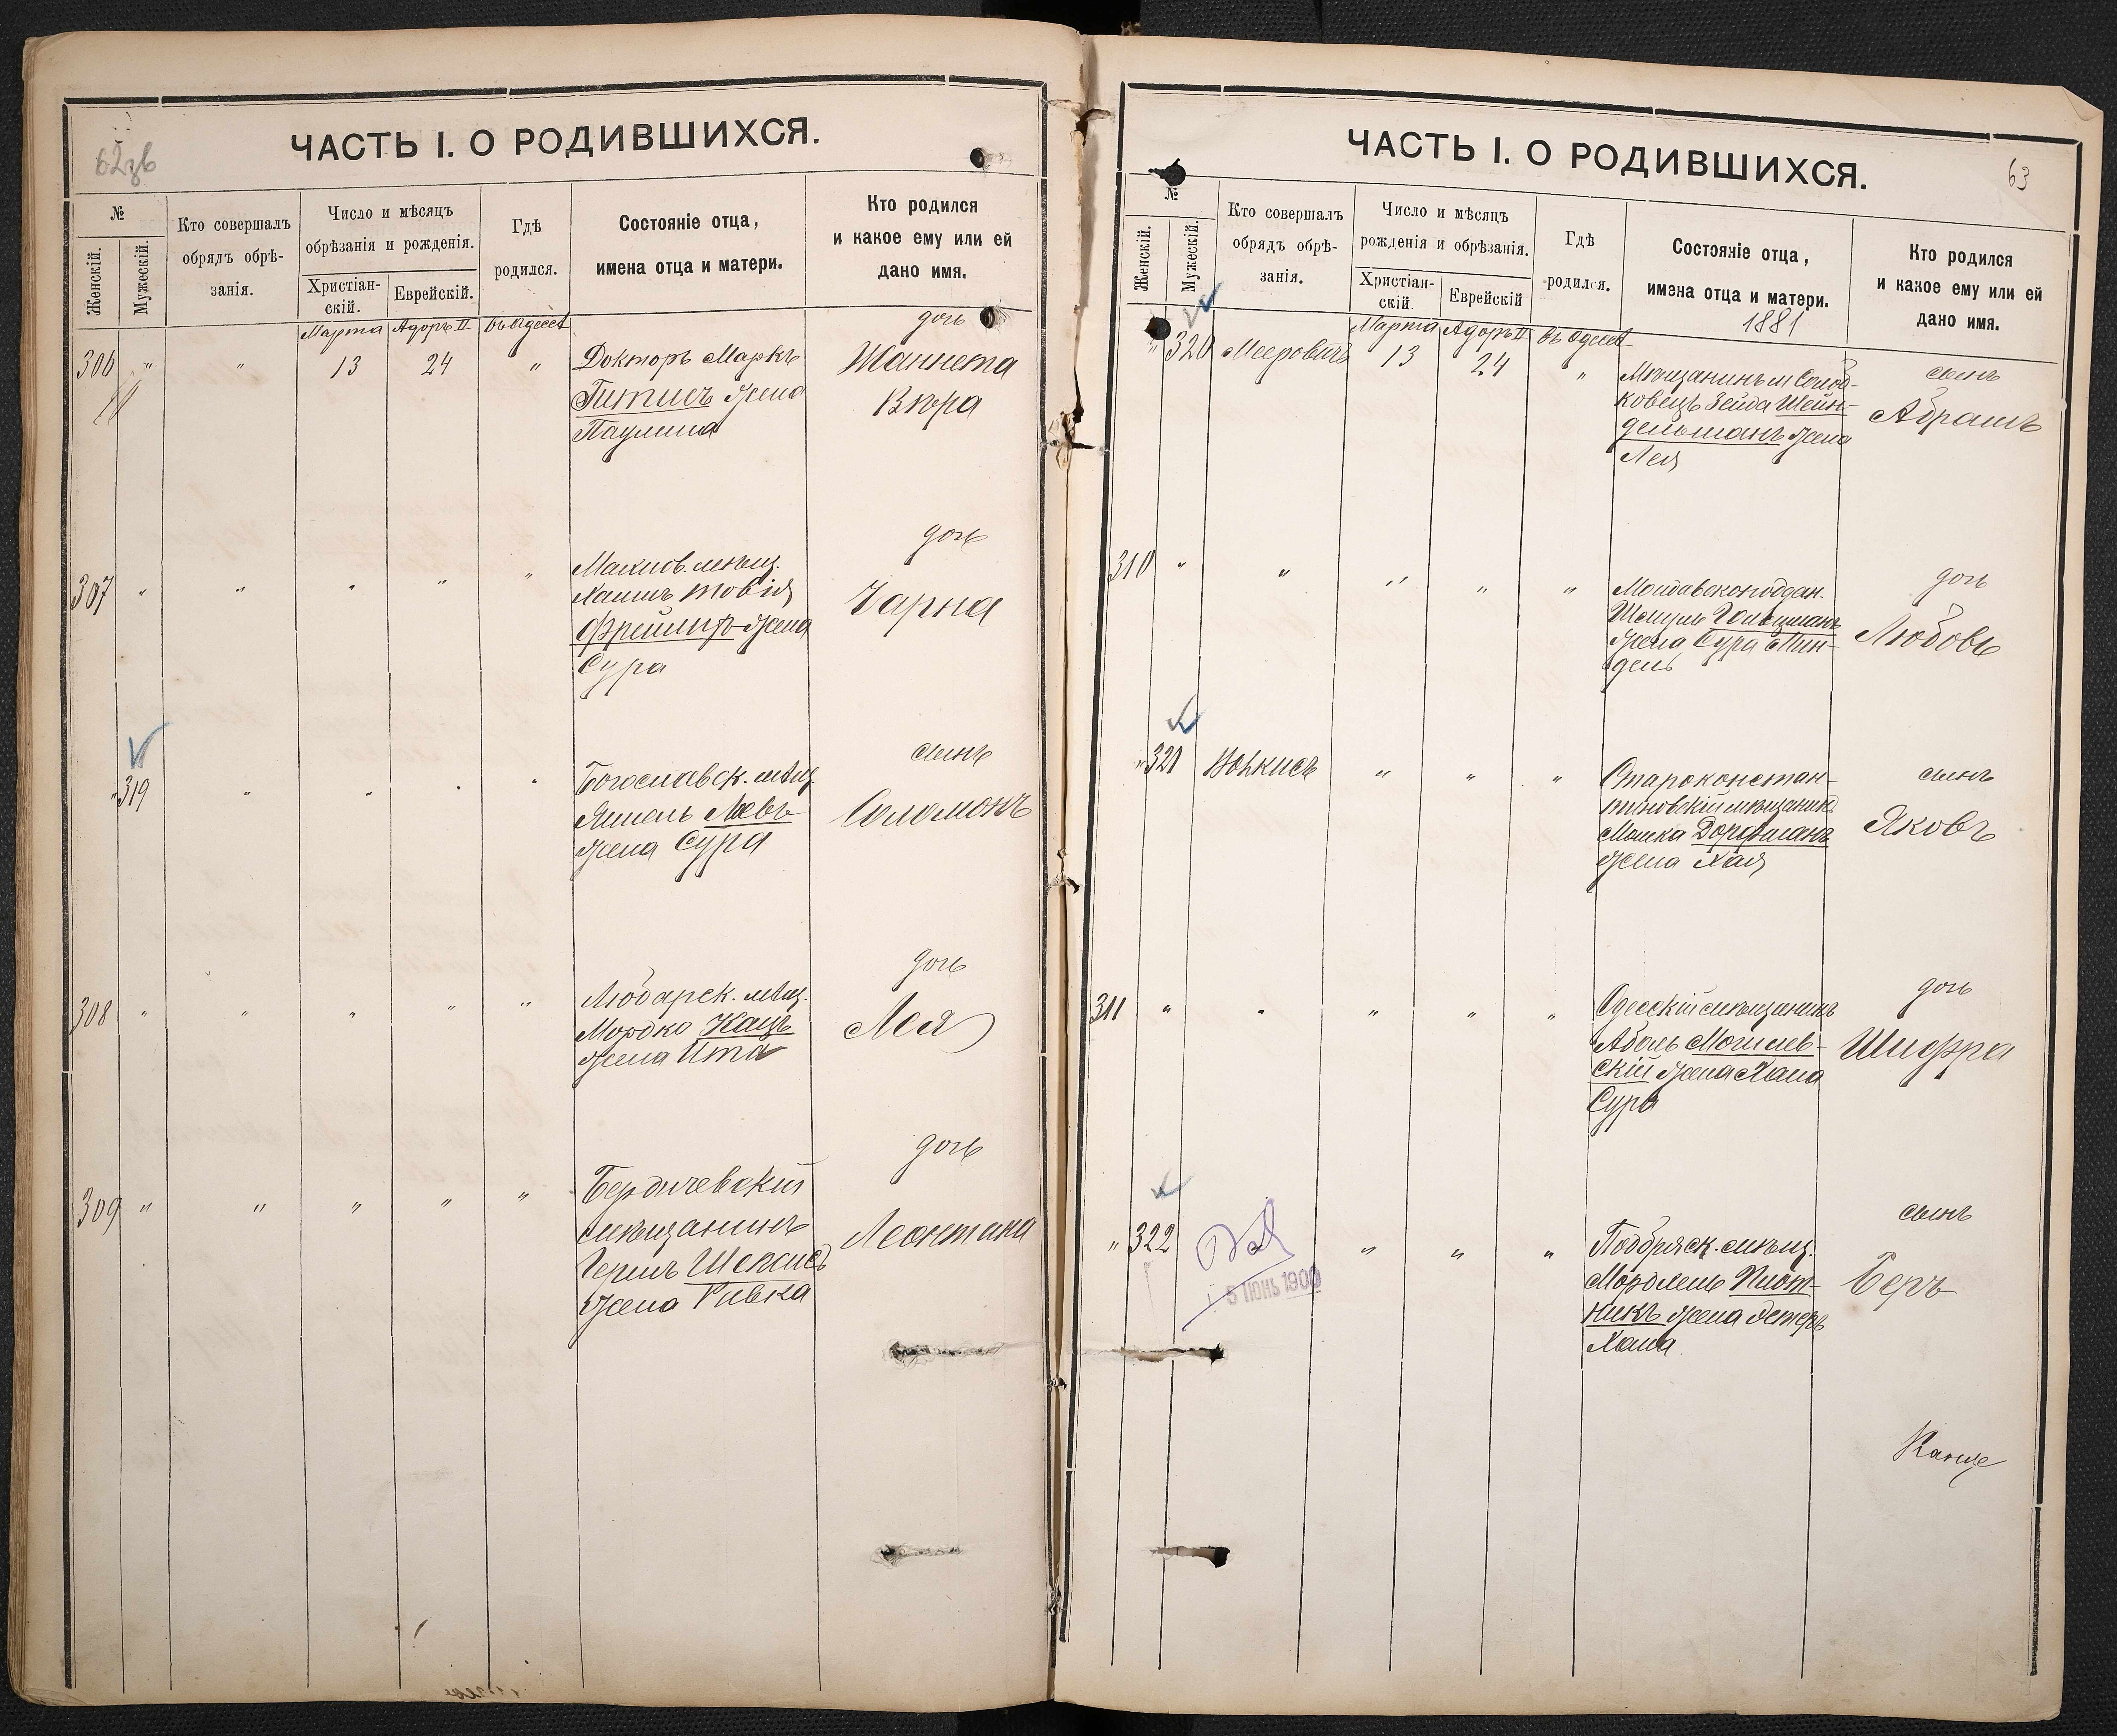 62зв
ЧАСТЬ I. О РОДИВШИХСЯ.
№
Женскій.
Мужескій.
Кто совершалъ
обрядъ обрѣ-
занія.
Число и мѣсяцъ
обрѣзанія и рожденія.
Христіан-
скій.
Еврейскій.
Гдѣ
родился.
Состояніе отца,
имена отца и матери.
Кто родился
и какое ему или ей
дано имя.
Марта Адоръ II въ Одессѣ
306 " " 13 24 "
Докторъ Маркъ
Гитисъ жена
Паулина
дочь
Жаннета
Вѣра
307 " " " " "
мѣщ.
Хаимъ Товія
жена
Сура
дочь
Чарна
319 " " " "
Богославск. мѣщ.
Левъ
жена Сура
сынъ
Соломонъ
308 " " " " "
Любарск. мѣщ.
Мордко Кацъ
жена Ита
дочь
Лея
309 " " " " "
Бердичевскій
мѣщанинъ
Гершъ
жена Ривка
дочь
Леонтина
63
ЧАСТЬ I. О РОДИВШИХСЯ.
№
Женскій.
Мужескій.
Кто совершалъ
обрядъ обрѣ-
занія.
Число и мѣсяцъ
рожденія и обрѣзанія.
Христіан-
скій.
Еврейскій
Гдѣ
родился.
Состояніе отца,
имена отца и матери.
1881
Кто родился
и какое ему или ей
дано имя.
Марта Адоръ II въ Одессѣ
" 320 Мееровичъ 13 24 "
Мѣщанинъ м Солод-
ковецъ Зейда Шейн-
дельманъ жена
Лея
сынъ
Абрамъ
310 " " " " "
Молдавскоподдан.
Шмуль Гольцманъ
жена Сура Мин-
дель
дочь
Любовь
" 321 " " "
Староконстан-
тиновскій мѣщанинъ
Мошка Дорфманъ
жена Хая
сынъ
Яковъ
311 " " " " "
Одесскій мѣщанинъ
Абель Могилев-
скій жена Хана
Сура
дочь
Шифра
" 322 " " "
5 ІЮНЬ 1900
мѣщ.
Плот-
никъ жена Эстеръ
Хана
сынъ
Беръ